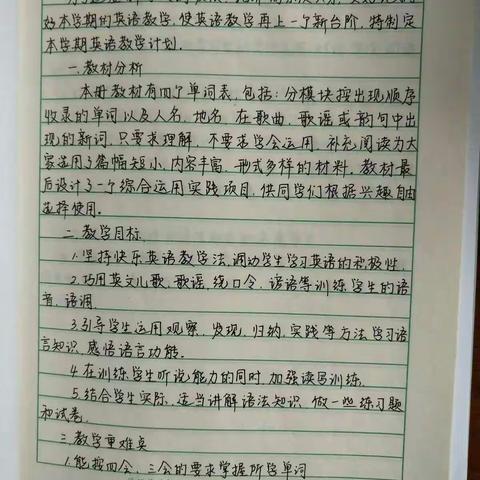 好本学期的英语教学,使英语教学再上一个新台阶,特制定
本学期英语教学计划.
一.教材分析
本册教材有四个单词表,包括:分模块按出现顺序
收录的单词以及人名、地名,在歌曲、歌谣或韵句中出
现的新词,只要求理解,不要求学会运用,补充阅读为大
家选用了篇幅短小,内容丰富,形式多样的材料,教材最
后设计了一个综合运用实践项目,供同学们根据兴趣自由
选择使用.
二.教学目标
1.坚持快乐英语教学法,调动学生学习英语的积极性.
2.巧用英文儿歌,歌谣,绕口令,谚语等训练学生的语
音,语调.
3.引导学生运用观察,发现,归纳,实践等方法学习语
言知识,感悟语言功能.
4.在训练学生听说能力的同时,加强读写训练.
5.结合学生实际,适当讲解语法知识,做一些练习题
和试卷.
三.教学重难点
1.能按四会、三会的要求掌握所学单词